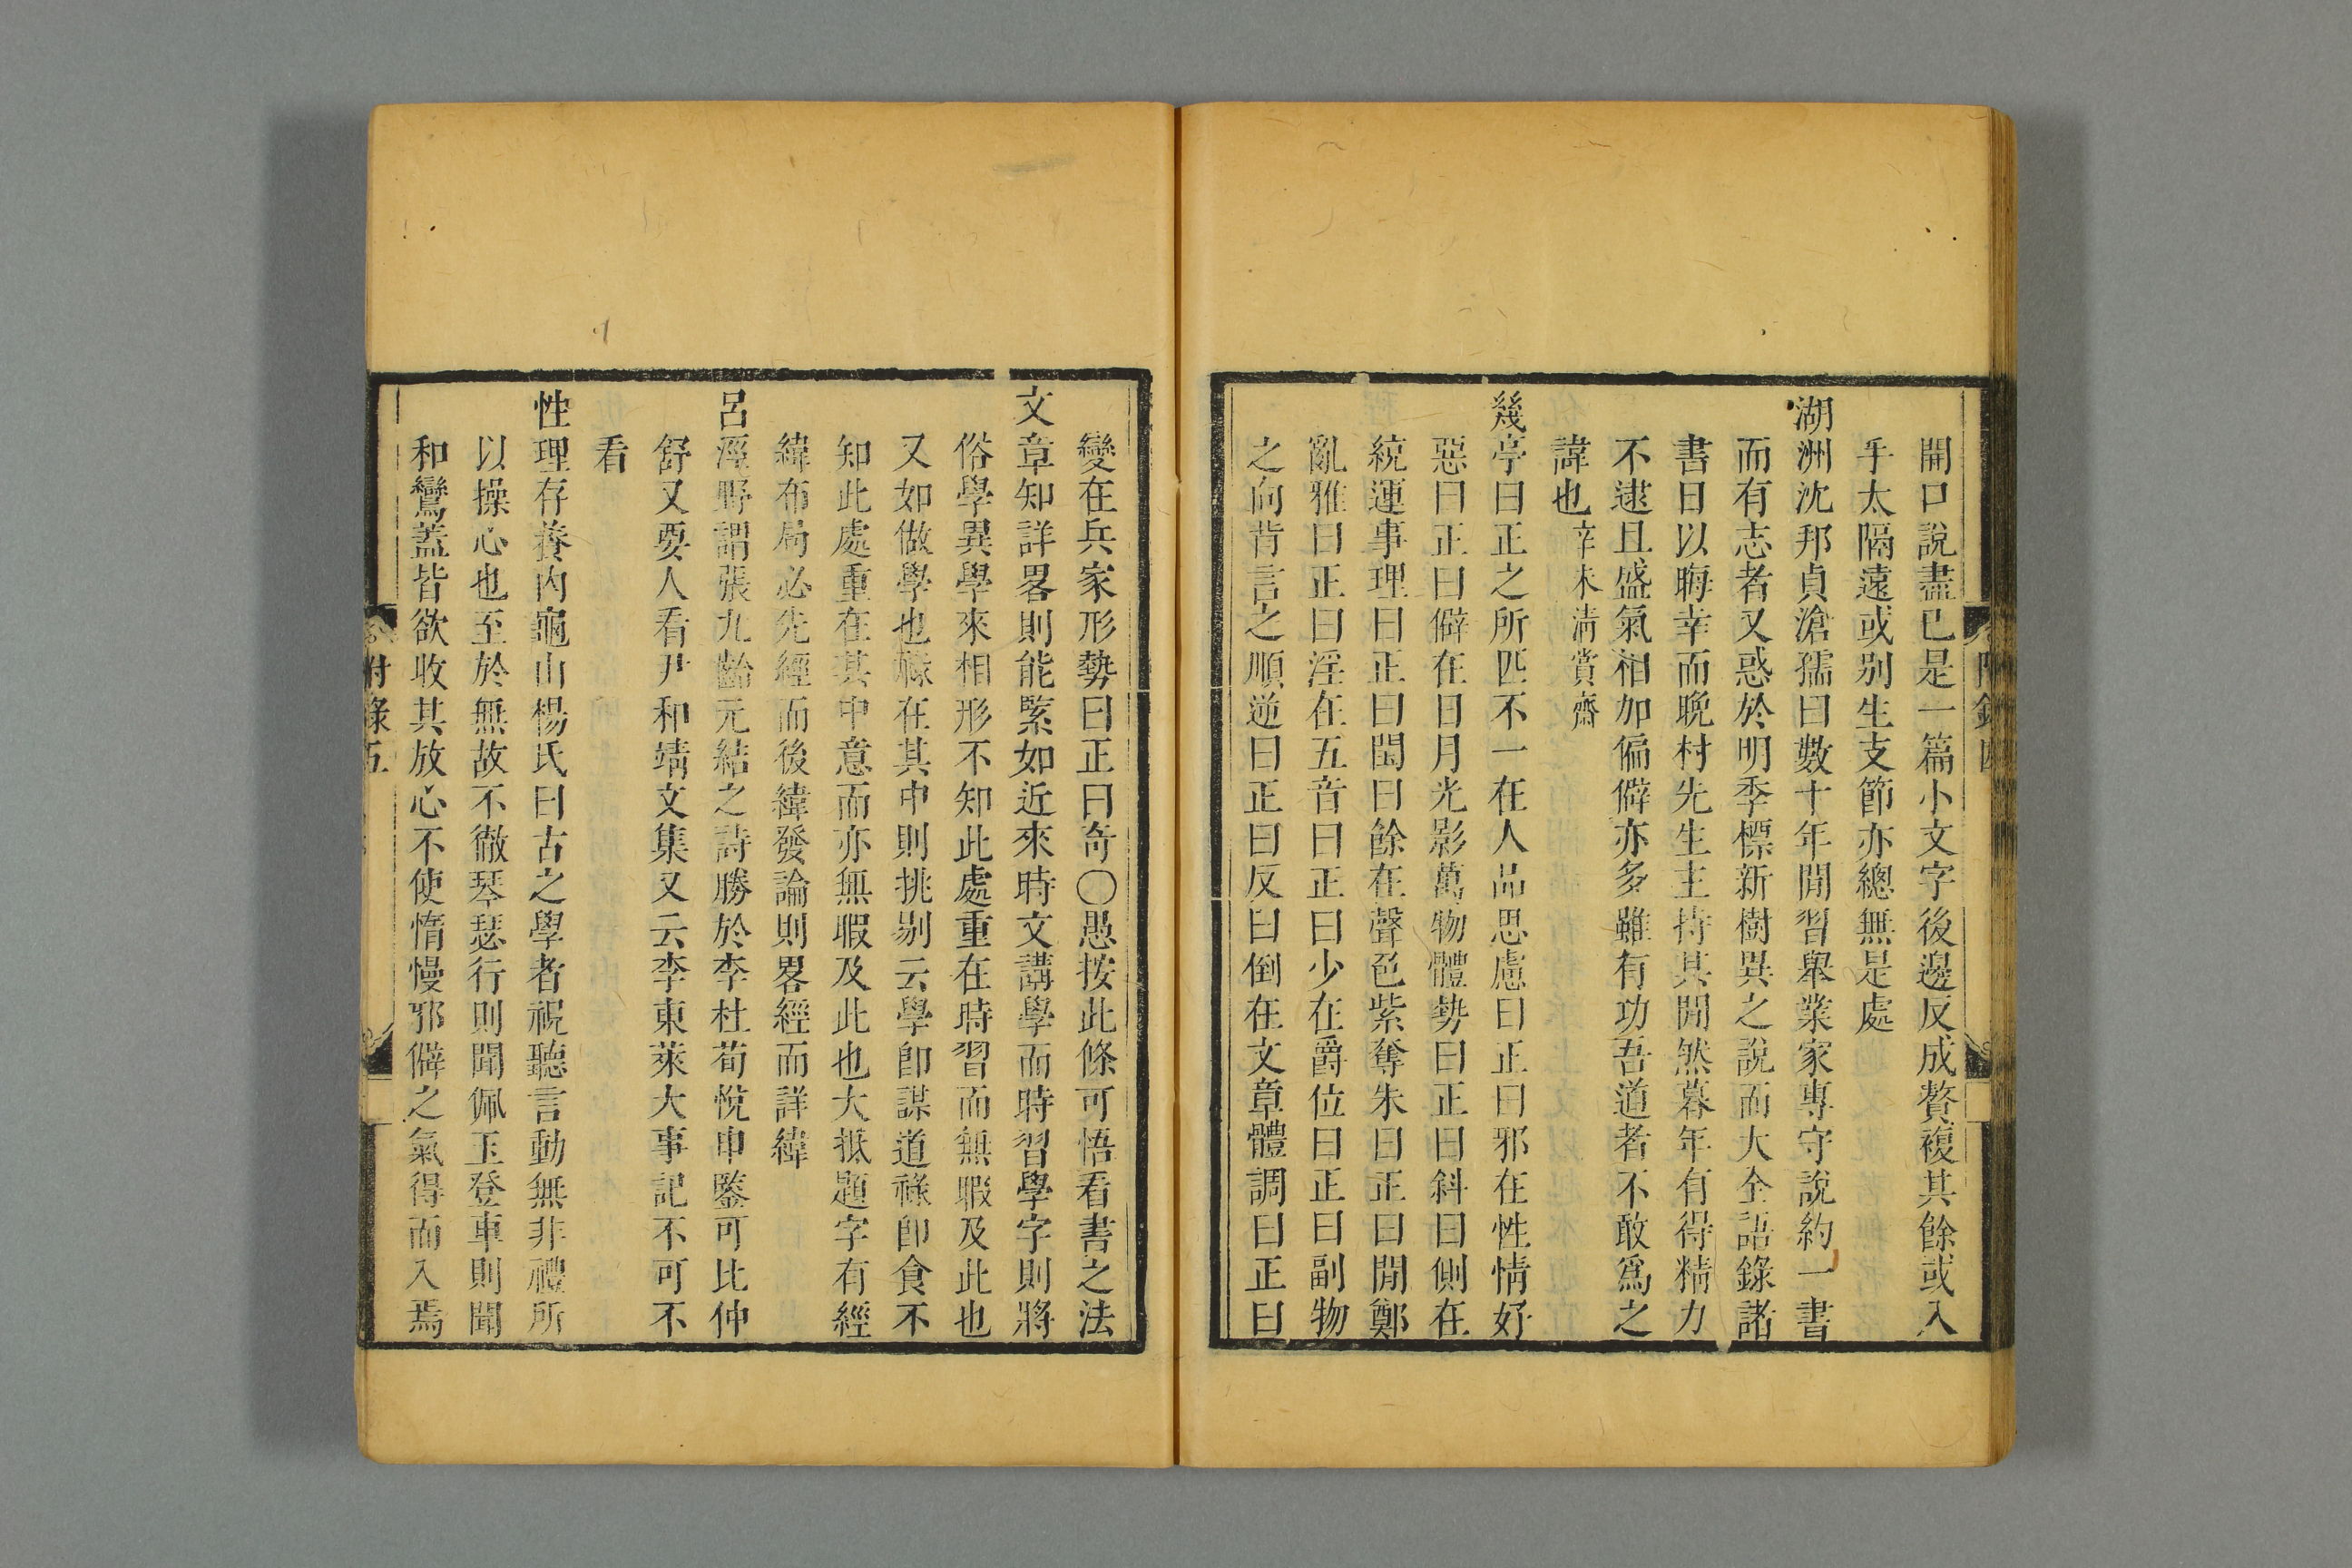 開口說盡已是一篇小文字後邊反成贅複其餘或入
手太隔遠或别生支節亦總無是處
湖洲沈邦貞滄孺曰數十年閒習舉業家專守說約一書
而有志者又惑於明季標新樹異之說而大全語錄諸
書日以晦幸而晚村先生主持其閒然暮年有得精力
不逮且盛氣相加偏僻亦多雖有功吾道者不敢爲之
諱也辛未淸賞齋
幾亭曰正之所匹不一在人品思慮曰正曰邪在性情好
惡曰正曰僻在日月光影萬物體勢曰正曰斜曰側在
統運事理曰正曰閏曰餘在聲色紫奪朱曰正曰閒鄭
亂雅曰正曰淫在五音曰正曰少在爵位曰正曰副物
之向背言之順逆曰正曰反曰倒在文章體調曰正曰
變在兵家形勢曰正曰奇〇愚按此條可悟看書之法
文章知詳畧則能緊如近來時文講學而時習學字則將
俗學異學來相形不知此處重在時習而無暇及此也
又如做學也祿在其中則挑剔云學卽謀道祿卽食不
知此處重在其中意而亦無暇及此也大抵題字有經
緯布局必先經而後緯發論則畧經而詳緯
呂涇野謂張九齡元結之詩勝於李杜荀悅申鑒可比仲
舒又要人看尹和靖文集又云李東萊大事記不可不
看
性理存養内龜山楊氏曰古之學者視聽言動無非禮所
以操心也至於無故不徹琴瑟行則聞佩玉登車則聞
和鸞蓋皆欲收其放心不使惰慢邪僻之氣得而入焉
附錄五